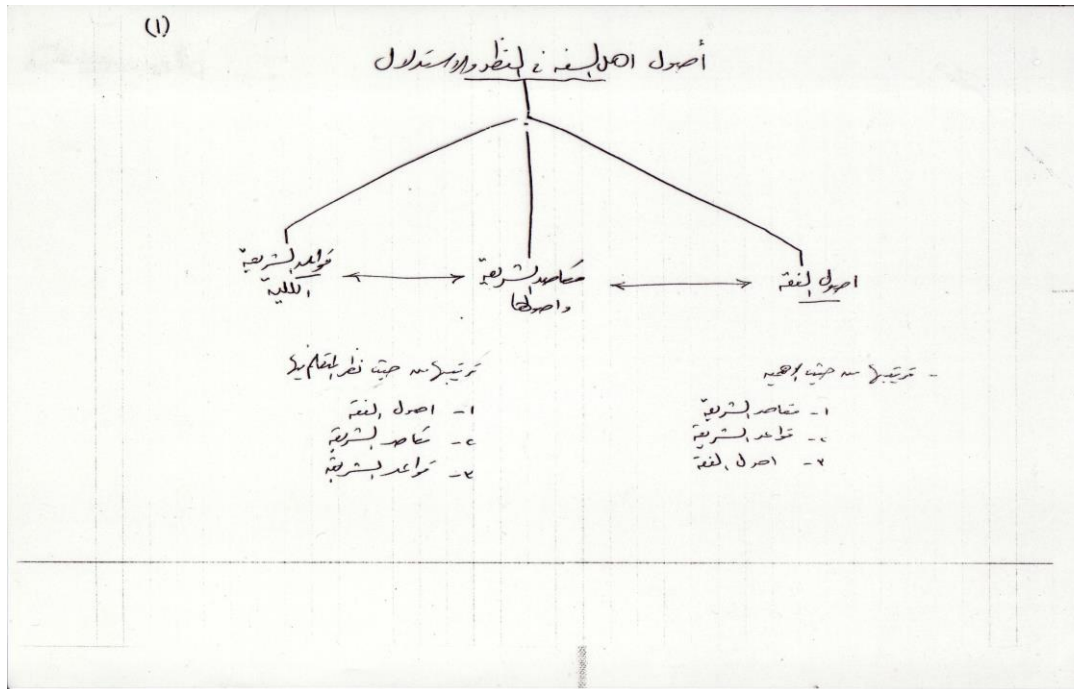 (١)
أصول اهل السنه في النظر والاستدلال
اصول الفقه
مقاصد الشريعة
واصولها
قواعد الشريعة
الكلية
- ترتيبها من حيث الاهميه
١- مقاصد الشريعة
٢- قواعد الشريعة
٣- اصول الفقة
ترتيبها من حيث نظر المتعلم فيها
١- اصول الفقة
٢- مقاصد الشريعة
٣- قواعد الشريعة